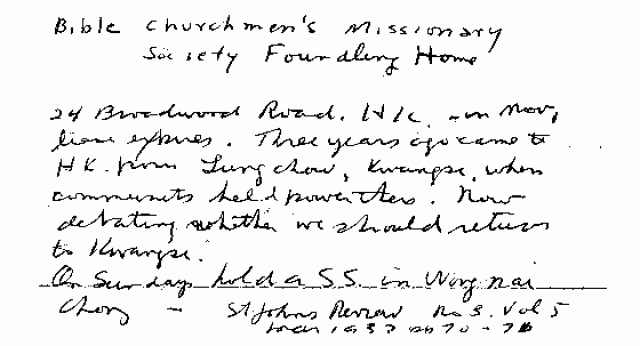 Bible Churchmen's Missionary
Society Foundling Home
24 Broadwood Road. H.K. - in Nov,
lease expires. Three years ago came to
H.K. from Lungchow, Kwangse, when
communists held power there. Now
debating whether we should return
to Kwangse.
On Sundays hold a S.S. in Wong nai
Chong - St Johns Review No 3. Vol 5
Mar 1933 pp 70 - 76